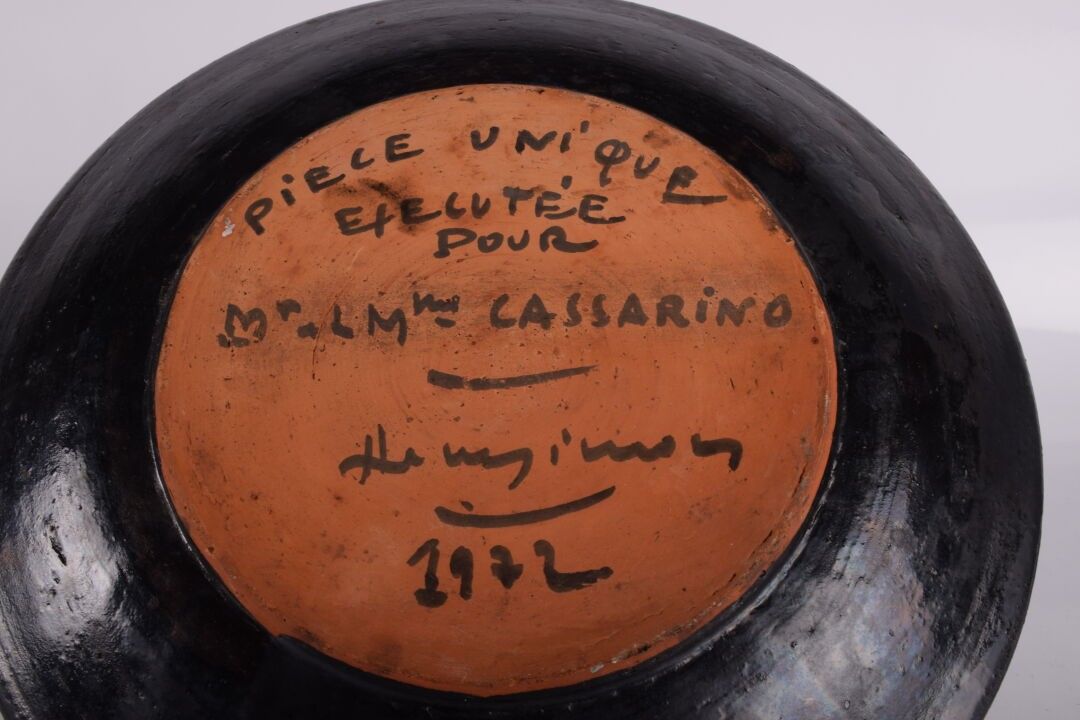 PIECE UNIQUE
EXECUTÉE
POUR
Mr et Mme CASSARINO
Henry Simon
1972